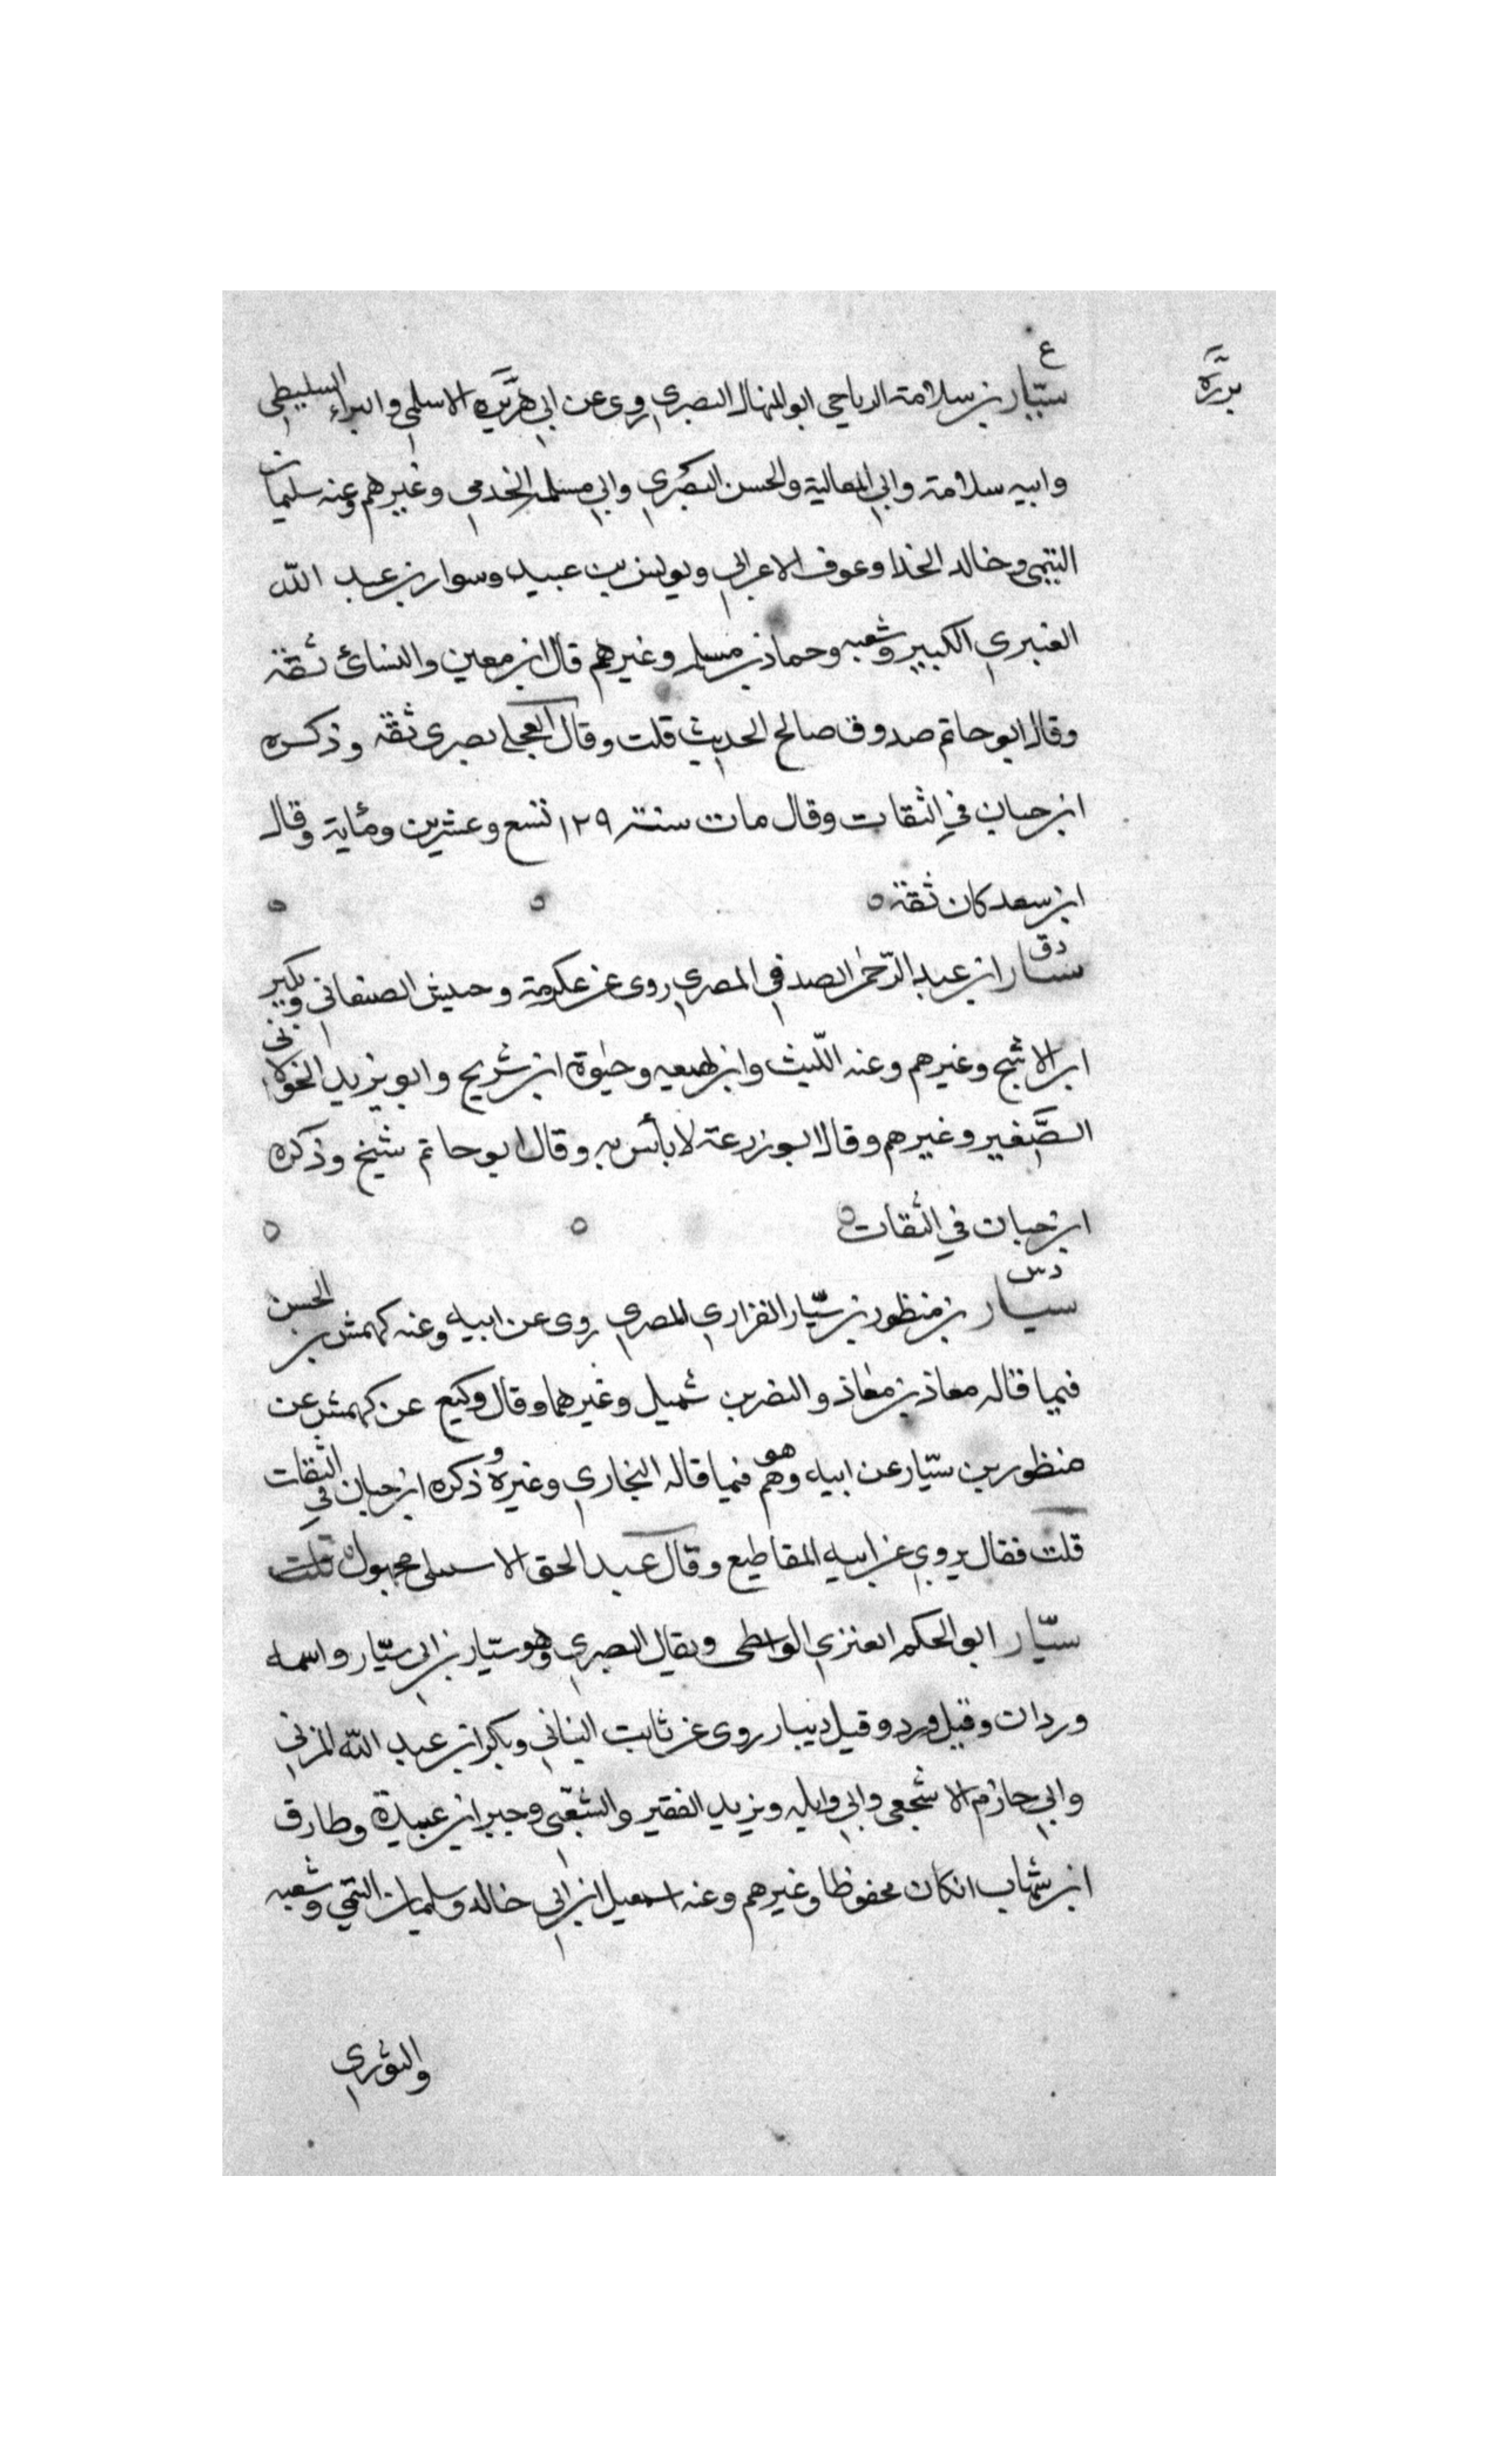 برزة
ع
سيّار بن سلامة الرياحي ابو المنهال البصري روى عن ابي هريرة الاسلمي والبراء السليطي
وابيه سلامة وابي العالية والحسن البصري وابي مسلمة الخدمي وغيرهم وعنه سليمان
التيمي وخالد الحذا وعوف الاعرابي ويونس بن عبيد وسوار بن عبد اللّه
العنبري الكبير وشعبه وحماد بن مسلم وغيرهم قال ابن معين والنسائ ثقة
وقال ابو حاتم صدوق صالح الحديث قلت وقال العجلي بصرى ثقه وذكره
ابن حبان في الثقات وقال مات سنة ١٢٩ تسع وعشرين ومأية وقال
ابن سعد كان ثقة ٥ ٥ ٥
دق
سيار ابن عبد الرّحمن الصدفي المصري روى عن عكرمة وحنيش الصنعاني وبكير
ابن الاشج وغيرهم وعنه اللّيث وابن لهيعه وحيوة ابن شريح وابو يزيد الخولاني
الصَّغير وغيرهم وقال ابو زرعة لا بأس به وقال ابو حاتم شيخ وذكره
ابن حبان في الثقات ٥ ٥ ٥
دس
سيار بن منظور بن سيّار الفزاري المصري روى عن ابيه وعنه كهمش بن الحسن
فيما قاله معاذ بن معاذ والنضر بن شميل وغيرهما وقال وكيع عن كهمش عن
منظور بن سيّار عن ابيه وهو وهم فيما قاله البخاري وغيره وذكره ابن حبان في الثقات
قلت فقال يروي عن ابيه المقاطيع وقال عبد الحق الاسبيلى مجهول قلت
سيّار ابو الحكم العنزي الواسطى ويقال البصري وهو سيّار بن ابى سيّار واسمه
وردان وقيل ورد وقيل دينار روى عن ثابت البناني وبكر ابن عبد اللّه المزني
وابي حازم الاشجعى وابي وايل ويزيد الفقير والشعبى وجبر ابن عبيدة وطارق
ابن شهاب انكان محفوظا وغيرهم وعنه اسمعيل ابن ابي خالد وسليمان التيمي وشعبه
والثوري